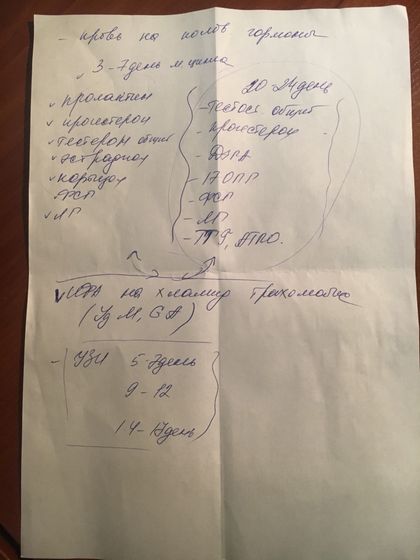 - кровь на полов гормоны
v 3-7 день м цикла
v пролактин
v прогестерон
v тестерон общий
v эстрадиол
v кортизол
ФСГ
v ЛГ
20 24 день
- тестост общий
- прогестерон
- ДГЭА
- 17 ОПГ
- ФСГ
- ЛГ
- ТТГ, АТПО.
v ИФА на хламид трахоматис
(Ig M, G A)
- УЗИ 5-7 день
9 - 12
14 - 17 день